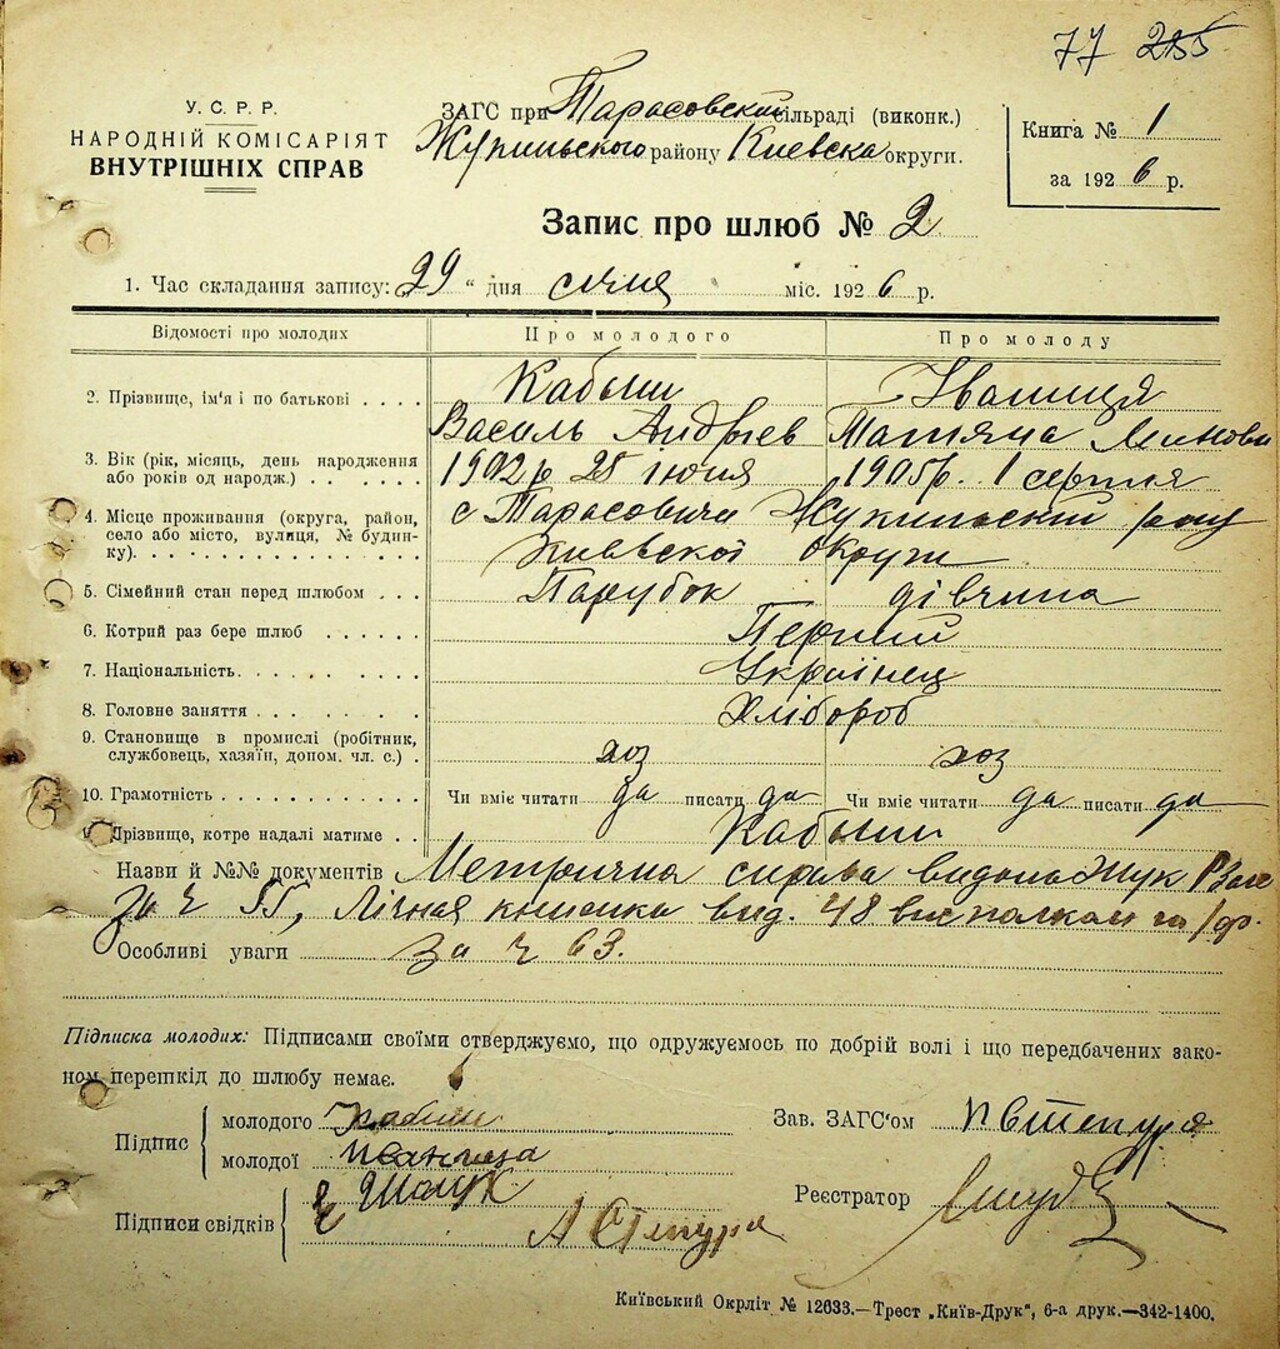 77 255
У. С. Р. Р.
НАРОДНІЙ КОМІСАРІЯТ
ВНУТРІШНІХ СПРАВ
ЗАГС при Тарасовский сільраді (виконк.)
району Киевска округи.
Книга № 1
за 1926 р.
Запис про шлюб № 2
1. Час складання запису: „29“ дня січня міс. 1926 р.
Відомості про молодих Про молодого Про молоду
2. Прізвище, ім'я і по батькові . . . . Кабыш Іваниця
Василь Андріев Татяна
3. Вік (рік, місяць, день народження 1902 р 25 июня 1905 р. 1 серпня
або років од народж.) . . . . . .
4. Місце проживання (округа, район, с Тарасовичи Жукинский
село або місто, вулиця, № будин- Київскоі округи
ку). . . . . . . . . . . . . . . .
5. Сімейний стан перед шлюбом . . . Парубок дівчина
6. Котрий раз бере шлюб . . . . . . Перший
7. Національність. . . . . . . . . Українец
8. Головне заняття . . . . . . . . Хлібороб
9. Становище в промислі (робітник,
службовець, хазяїн, допом. чл. с.) . хоз хоз
10. Грамотність . . . . . . . . . . . . Чи вміє читати да писати да Чи вміє читати да писати да
Прізвище, котре надалі матиме . . Кабыш
Назви й №№ документів Метрична справа видана Жук
За ч 55, Лічная книжка выд. 48
Особливі уваги За ч 63.
Підписка молодих: Підписами своїми стверджуємо, що одружуємось по добрій волі і що передбачених зако-
ном перешкід до шлюбу немає.
Підпис
молодого Кабыш
молодої Иваница
Зав. ЗАГС'ом
Реєстратор
Підписи свідків
А Степура
Київський Окрліт № 12633.—Трест „Київ-Друк“, 6-а друк.—342-1400.